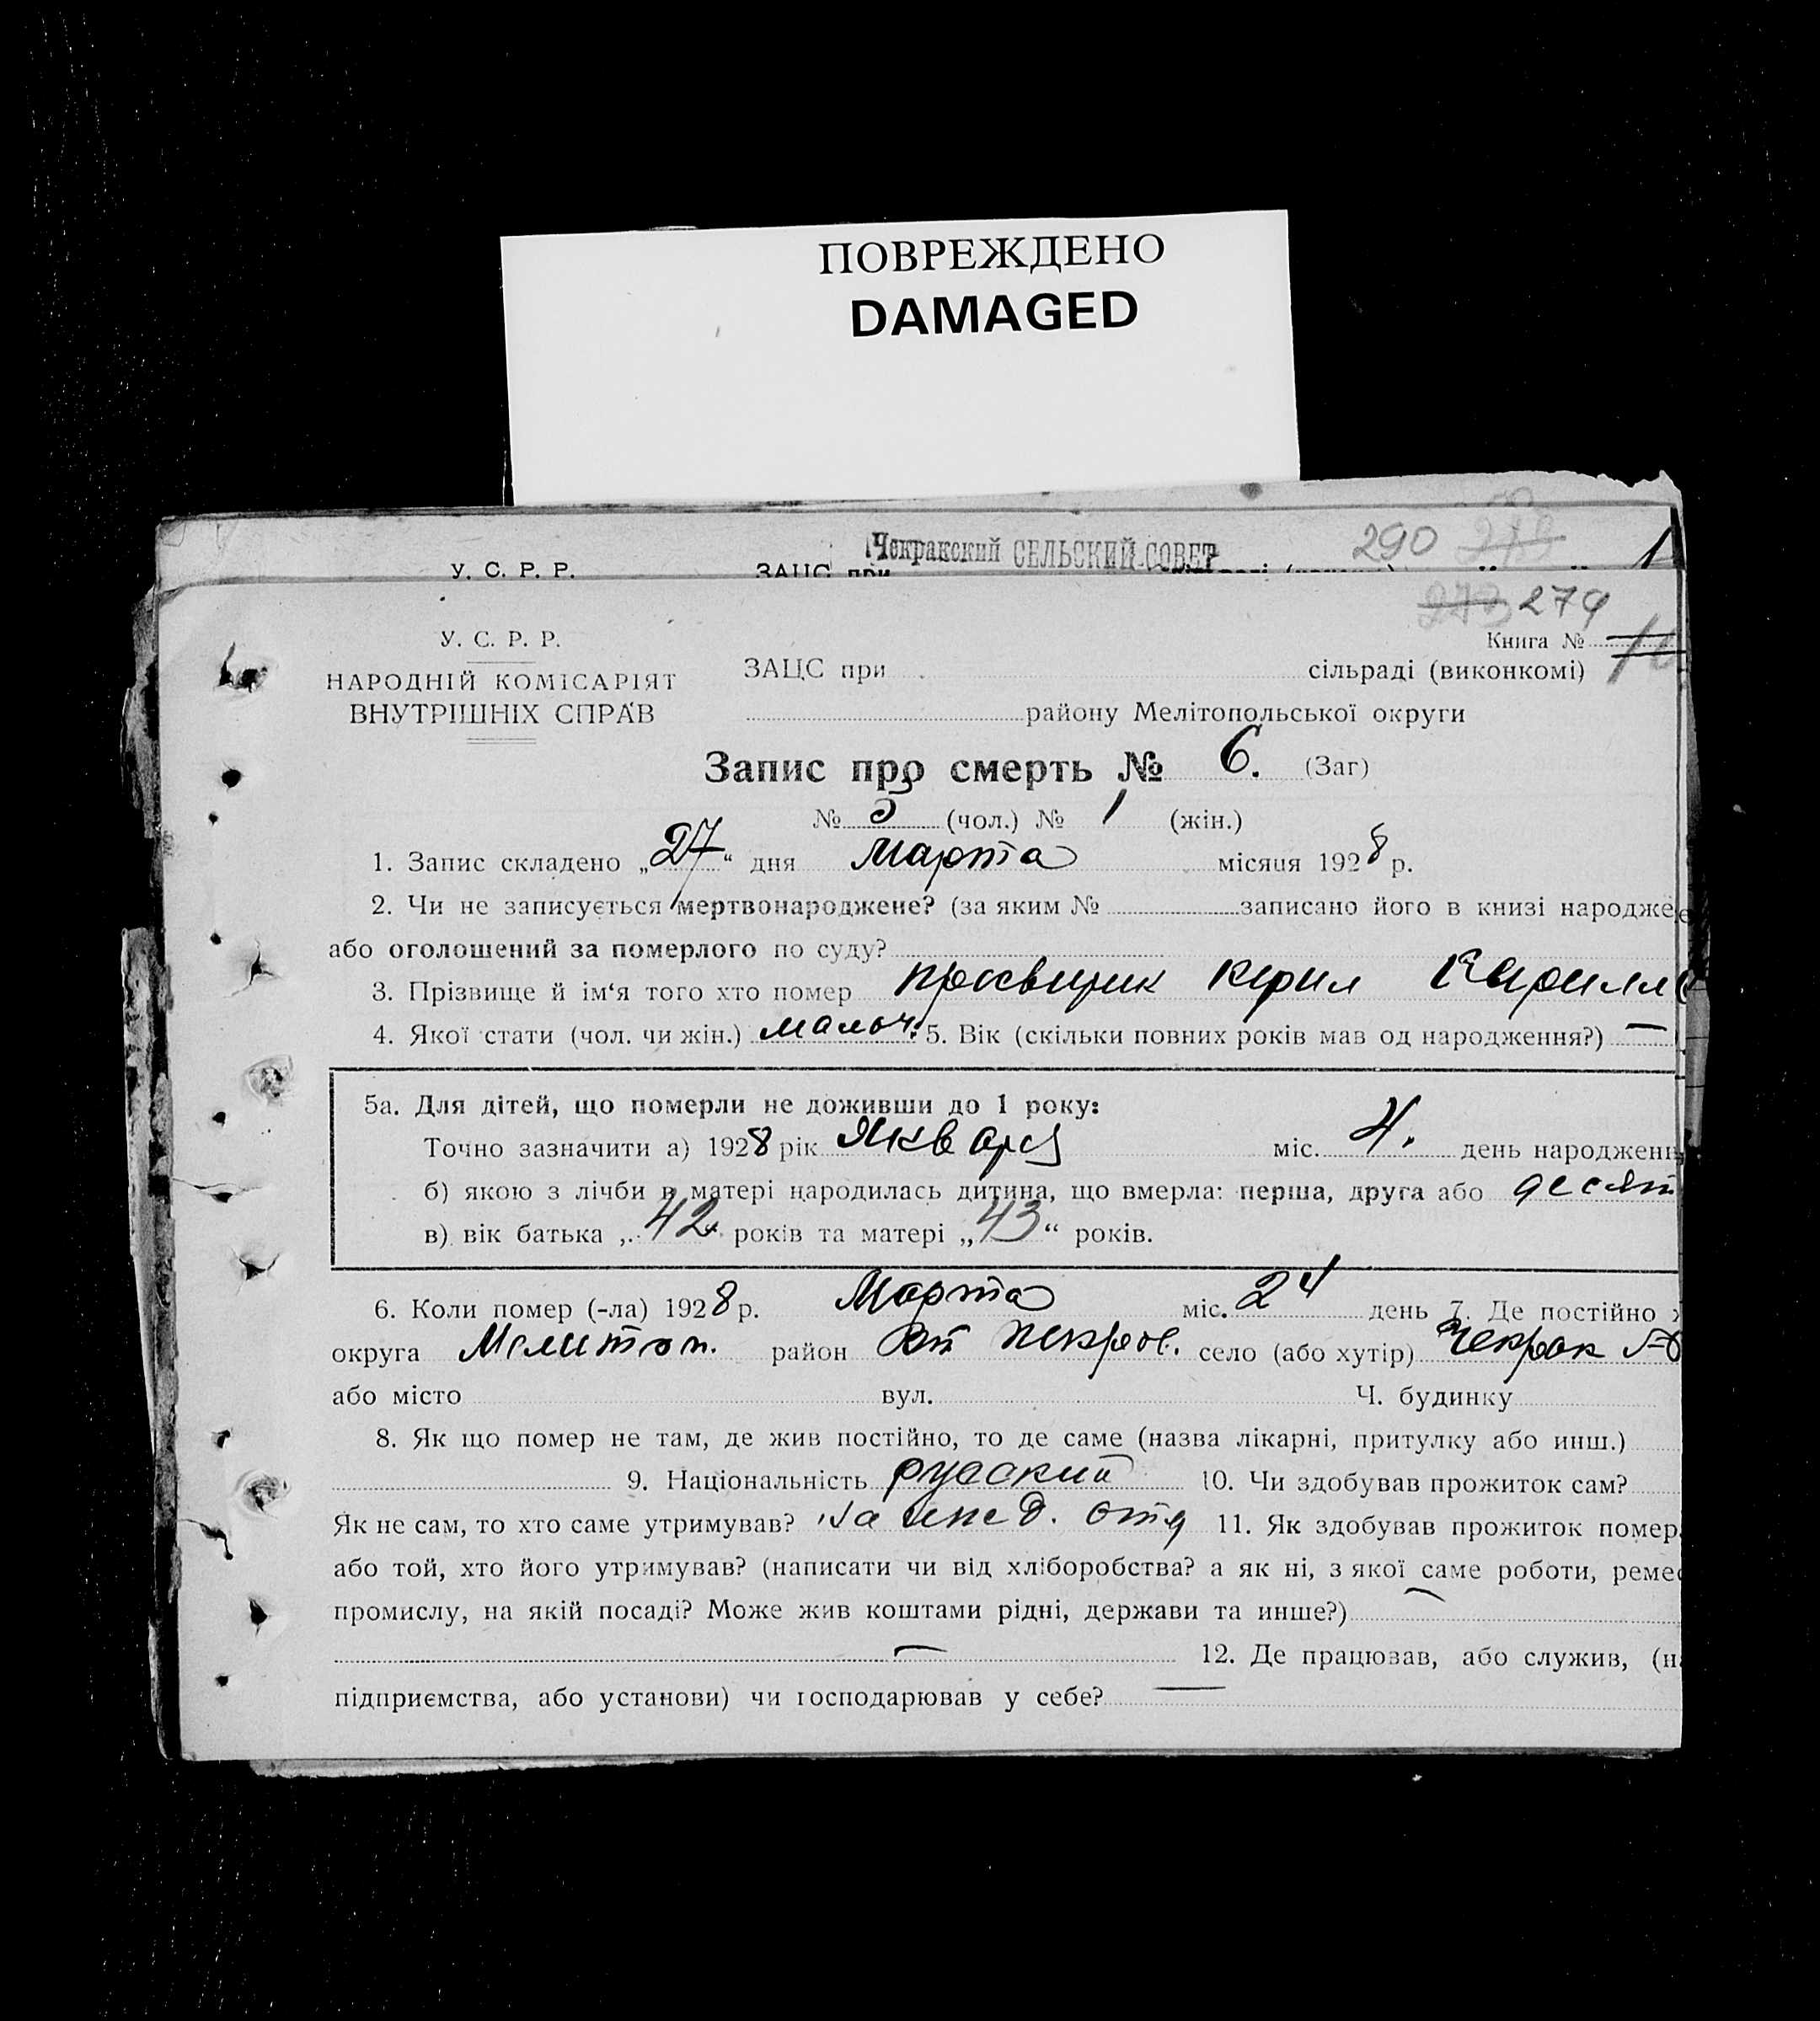 ПОВРЕЖДЕНО
DAMAGED
Чекракский СЕЛЬСКИЙ СОВЕТ 290
У. С. Р. Р. ЗАЦС при
279
У. С. Р. Р. Книга №
НАРОДНІЙ КОМІСАРІЯТ ЗАЦС при сільраді (виконкомі)
ВНУТРІШНІХ СПРАВ району Мелітопольської округи
Запис про смерть № 6. (Заг)
№ 5 (чол.) № 1 (жін.)
1. Запис складено „27“ дня Марта місяця 1928 р.
2. Чи не записується мертвонароджене? (за яким № записано його в книзі народже
або оголошений за померлого по суду?
3. Прізвище й ім‘я того хто помер Кирил Кирилл
4. Якої стати (чол. чи жін.) мальч. 5. Вік (скільки повних років мав од народження?) —
5а. Для дітей, що померли не доживши до 1 року:
Точно зазначити а) 1928 рік Января міс. 4. день народженн
б) якою з лічби в матері народилась дитина, що вмерла: перша, друга або десят
в) вік батька „42“ років та матері „43“ років.
6. Коли помер (-ла) 1928 р. Марта міс. 24 день 7. Де постійно
округа Мелитоп. район село (або хутір) Чекрак
або місто вул. Ч. будинку
8. Як що помер не там, де жив постійно, то де саме (назва лікарні, притулку або инш.)
9. Національність русский 10. Чи здобував прожиток сам?
Як не сам, то хто саме утримував? На ижед. отц 11. Як здобував прожиток помер
або той, хто його утримував? (написати чи від хліборобства? а як ні, з якої саме роботи, ремес
промислу, на якій посаді? Може жив коштами рідні, держави та инше?) —
— 12. Де працював, або служив, (на
підприємства, або установи) чи господарював у себе? —